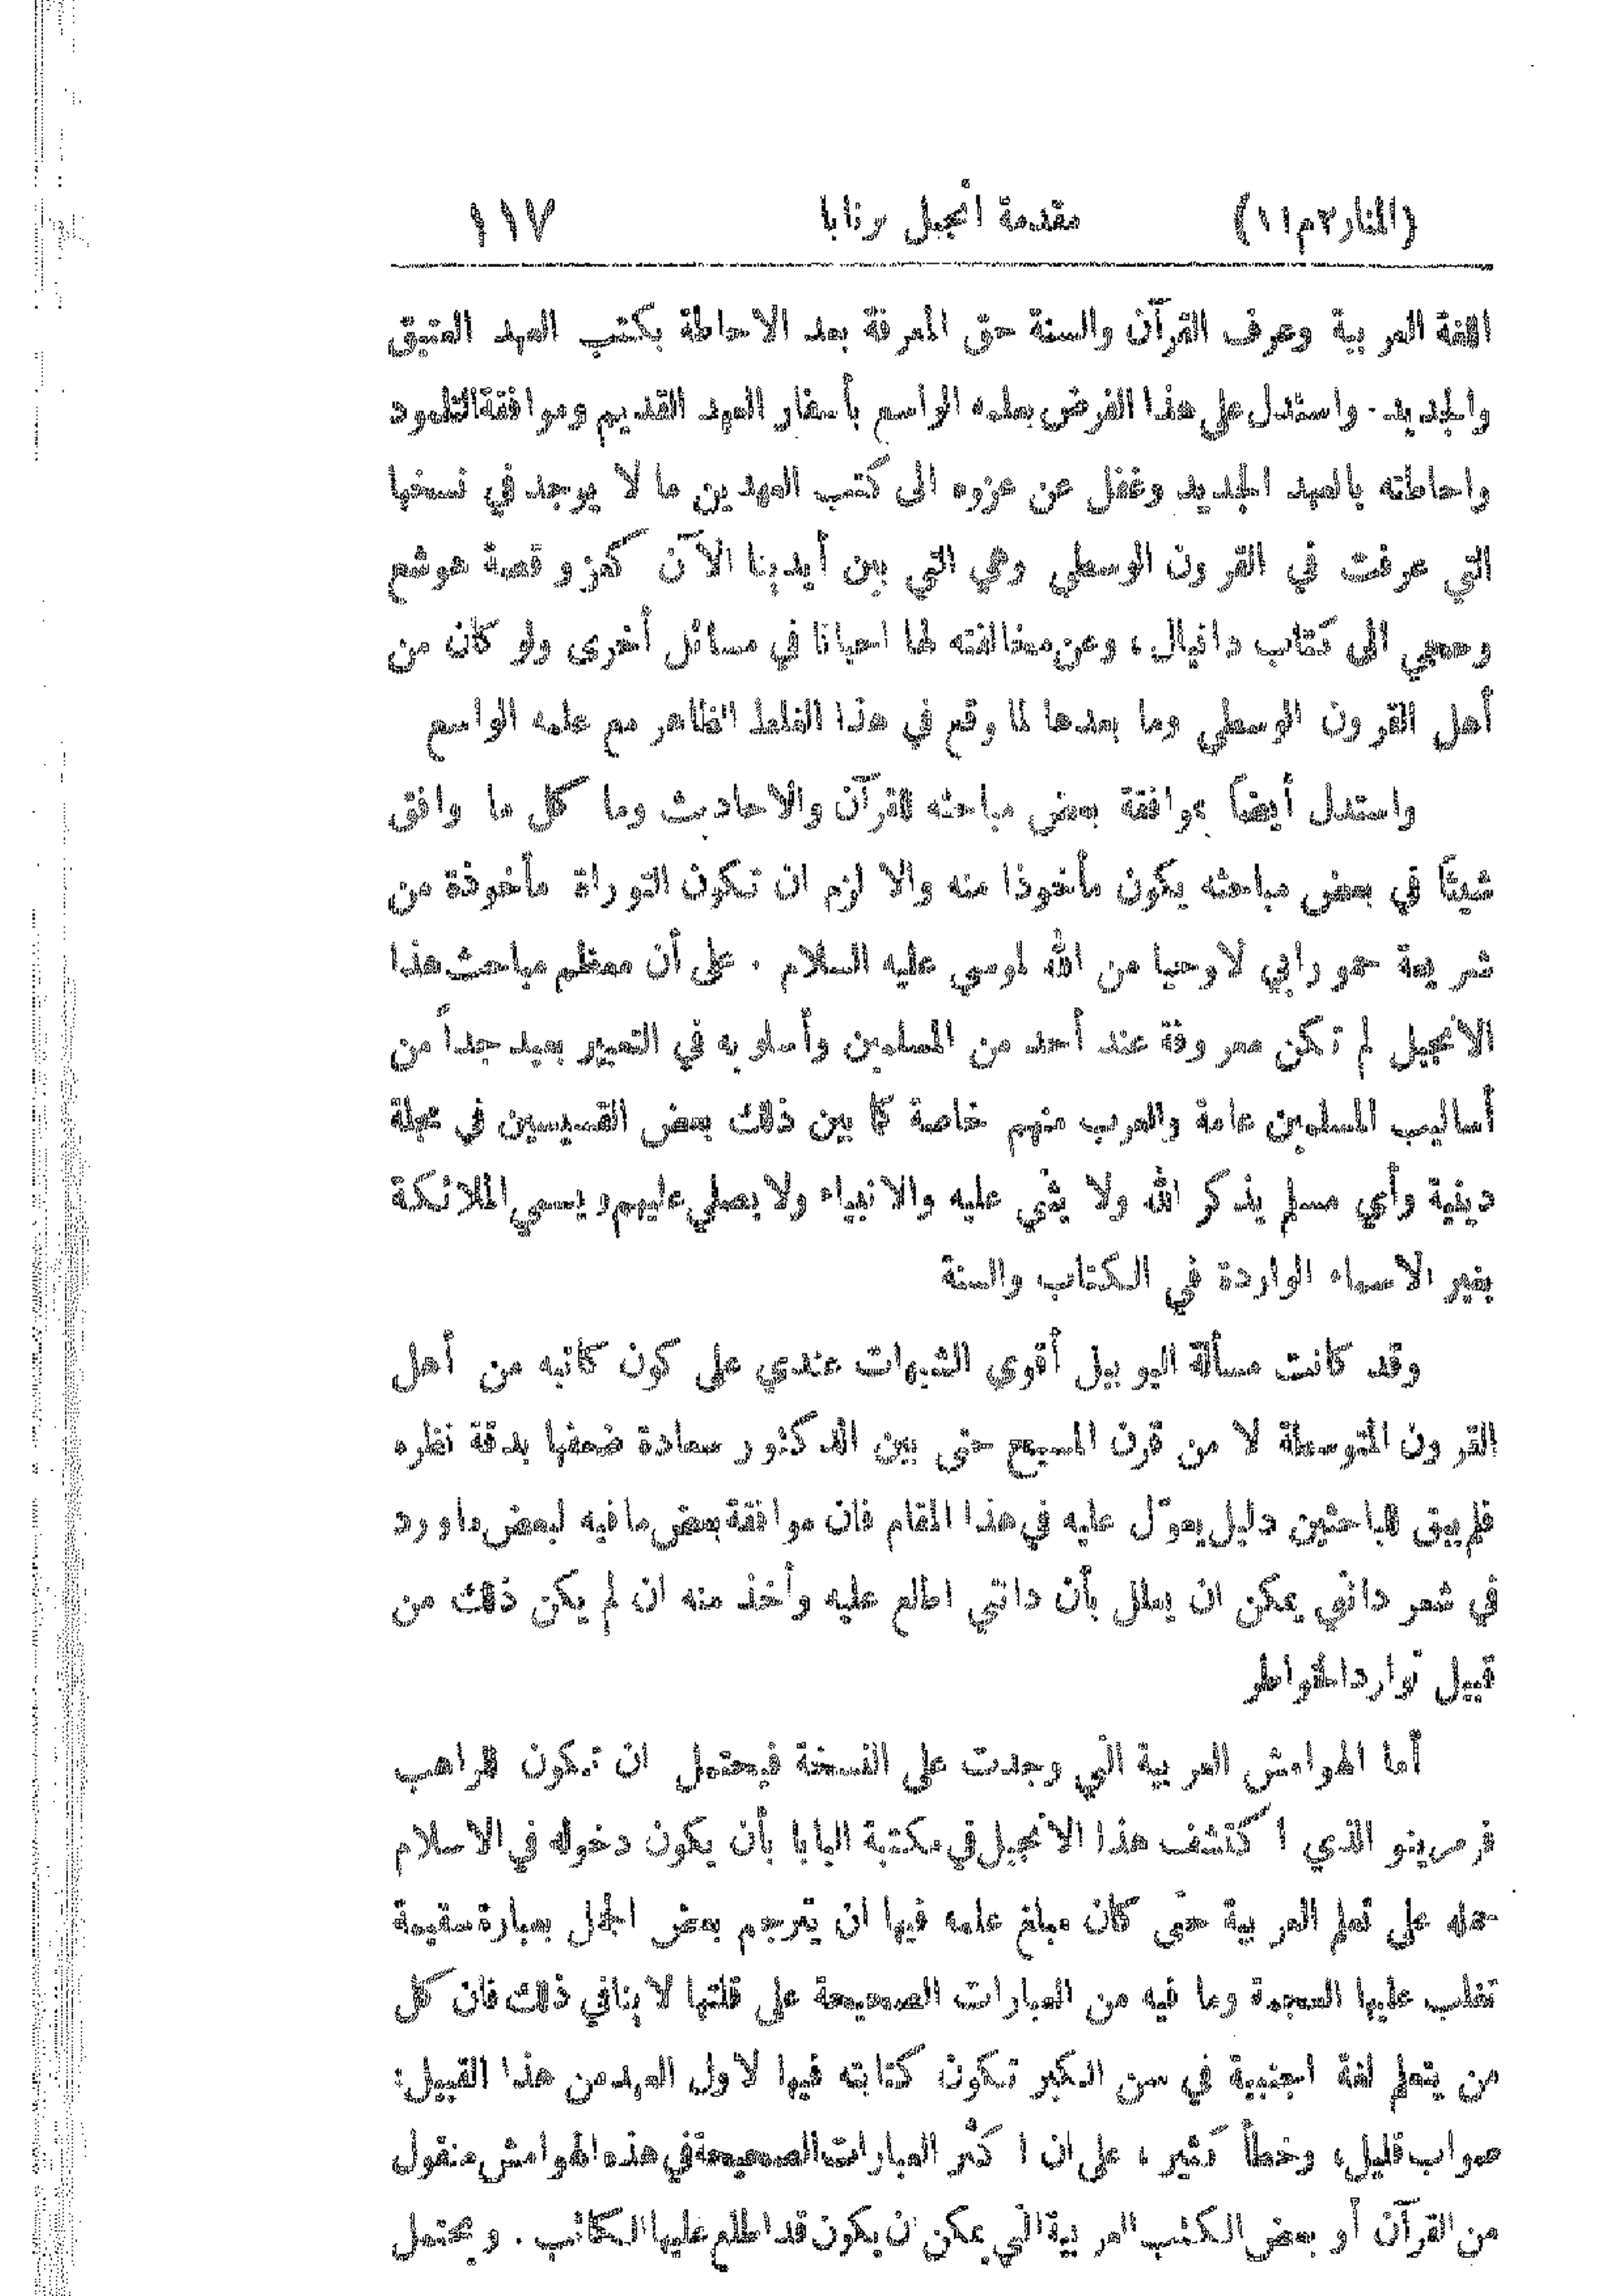 (المنار٢م١١) مقدمة أنجيل برنابا ١١٧
اللغة العربية وعرف القرآن والسنة حق المعرفة بعد الاحاطة بكتب العهد العتيق
والجديد. واستدل على هذا الفرض بعلمه الواسع بأسفار العهد القديم وموافقة التلمود
واحاطته بالعهد الجديد وغفل عن عزوه الى كتب العهدين ما لا يوجد في نسخها
التي عرفت في القرون الوسطى وهي التي بين أيدينا الآن كعزو قصة هوشع
وحجي الى كتاب دانيال، وعن مخالفته لها احيانا في مسائل أخرى ولو كان من
أهل القرون الوسطى وما بعدها لما وقع في هذا الغلط الظاهر مع علمه الواسع
واستدل أيضاً بموافقة بعض مباحثه للقرآن والاحاديث وما كل ما وافق
شيئاً في بعض مباحثه يكون مأخوذا منه والا لزم ان تكون التوراة مأخوذة من
شريعة حمورابي لا وحيا من الله لموسى عليه السلام . على أن معظم مباحث هذا
الانجيل لم تكن معروفة عند أحد من المسلمين وأسلوبه في التعبير بعيد جداً من
أساليب المسلمين عامة والعرب منهم خاصة كما بين ذلك بعض القسيسين في مجلة
دينية وأي مسلم يذكر الله ولا يثني عليه والانبياء ولا يصلي عليهم ويسمي الملائكة
بغير الاسماء الواردة في الكتاب والسنة
وقد كانت مسألة اليوبيل أقوى الشبهات عندي على كون كاتبه من أهل
القرون المتوسطة لا من قرن المسيح حتى بين الدكتور سعادة ضعفها بدقة نظره
فلم يبق للباحثين دليل يعوّل عليه في هذا المقام فان موافقة بعض ما فيه لبعض ما ورد
في شعر دانتي يمكن ان يعلل بأن دانتي اطلع عليه وأخذ منه ان لم يكن ذلك من
قبيل توارد الخواطر
أما الهوامش العربية التي وجدت على النسخة فيحتمل ان تكون للراهب
فرمرينو الذي اكتشف هذا الانجيل في مكتبة البابا بأن يكون دخوله في الاسلام
حمله على تعلم العربية حتى كان مبلغ علمه فيها ان يترجم بعض الجمل بعبارة سقيمة
تغلب عليها العجمة وما فيه من العبارات الصحيحة على قلتها لا ينافي ذلك فان كل
من يتعلم لغة اجنبية في سن الكبر تكون كتابته فيها لاول العهد من هذا القبيل:
صواب قليل، وخطأ كثير، على ان اكثر العبارات الصحيحة في هذه الهوامش منقول
من القرآن أو بعض الكتب العربية التي يمكن ان يكون قد اطلع عليها الكاتب . ويحتمل